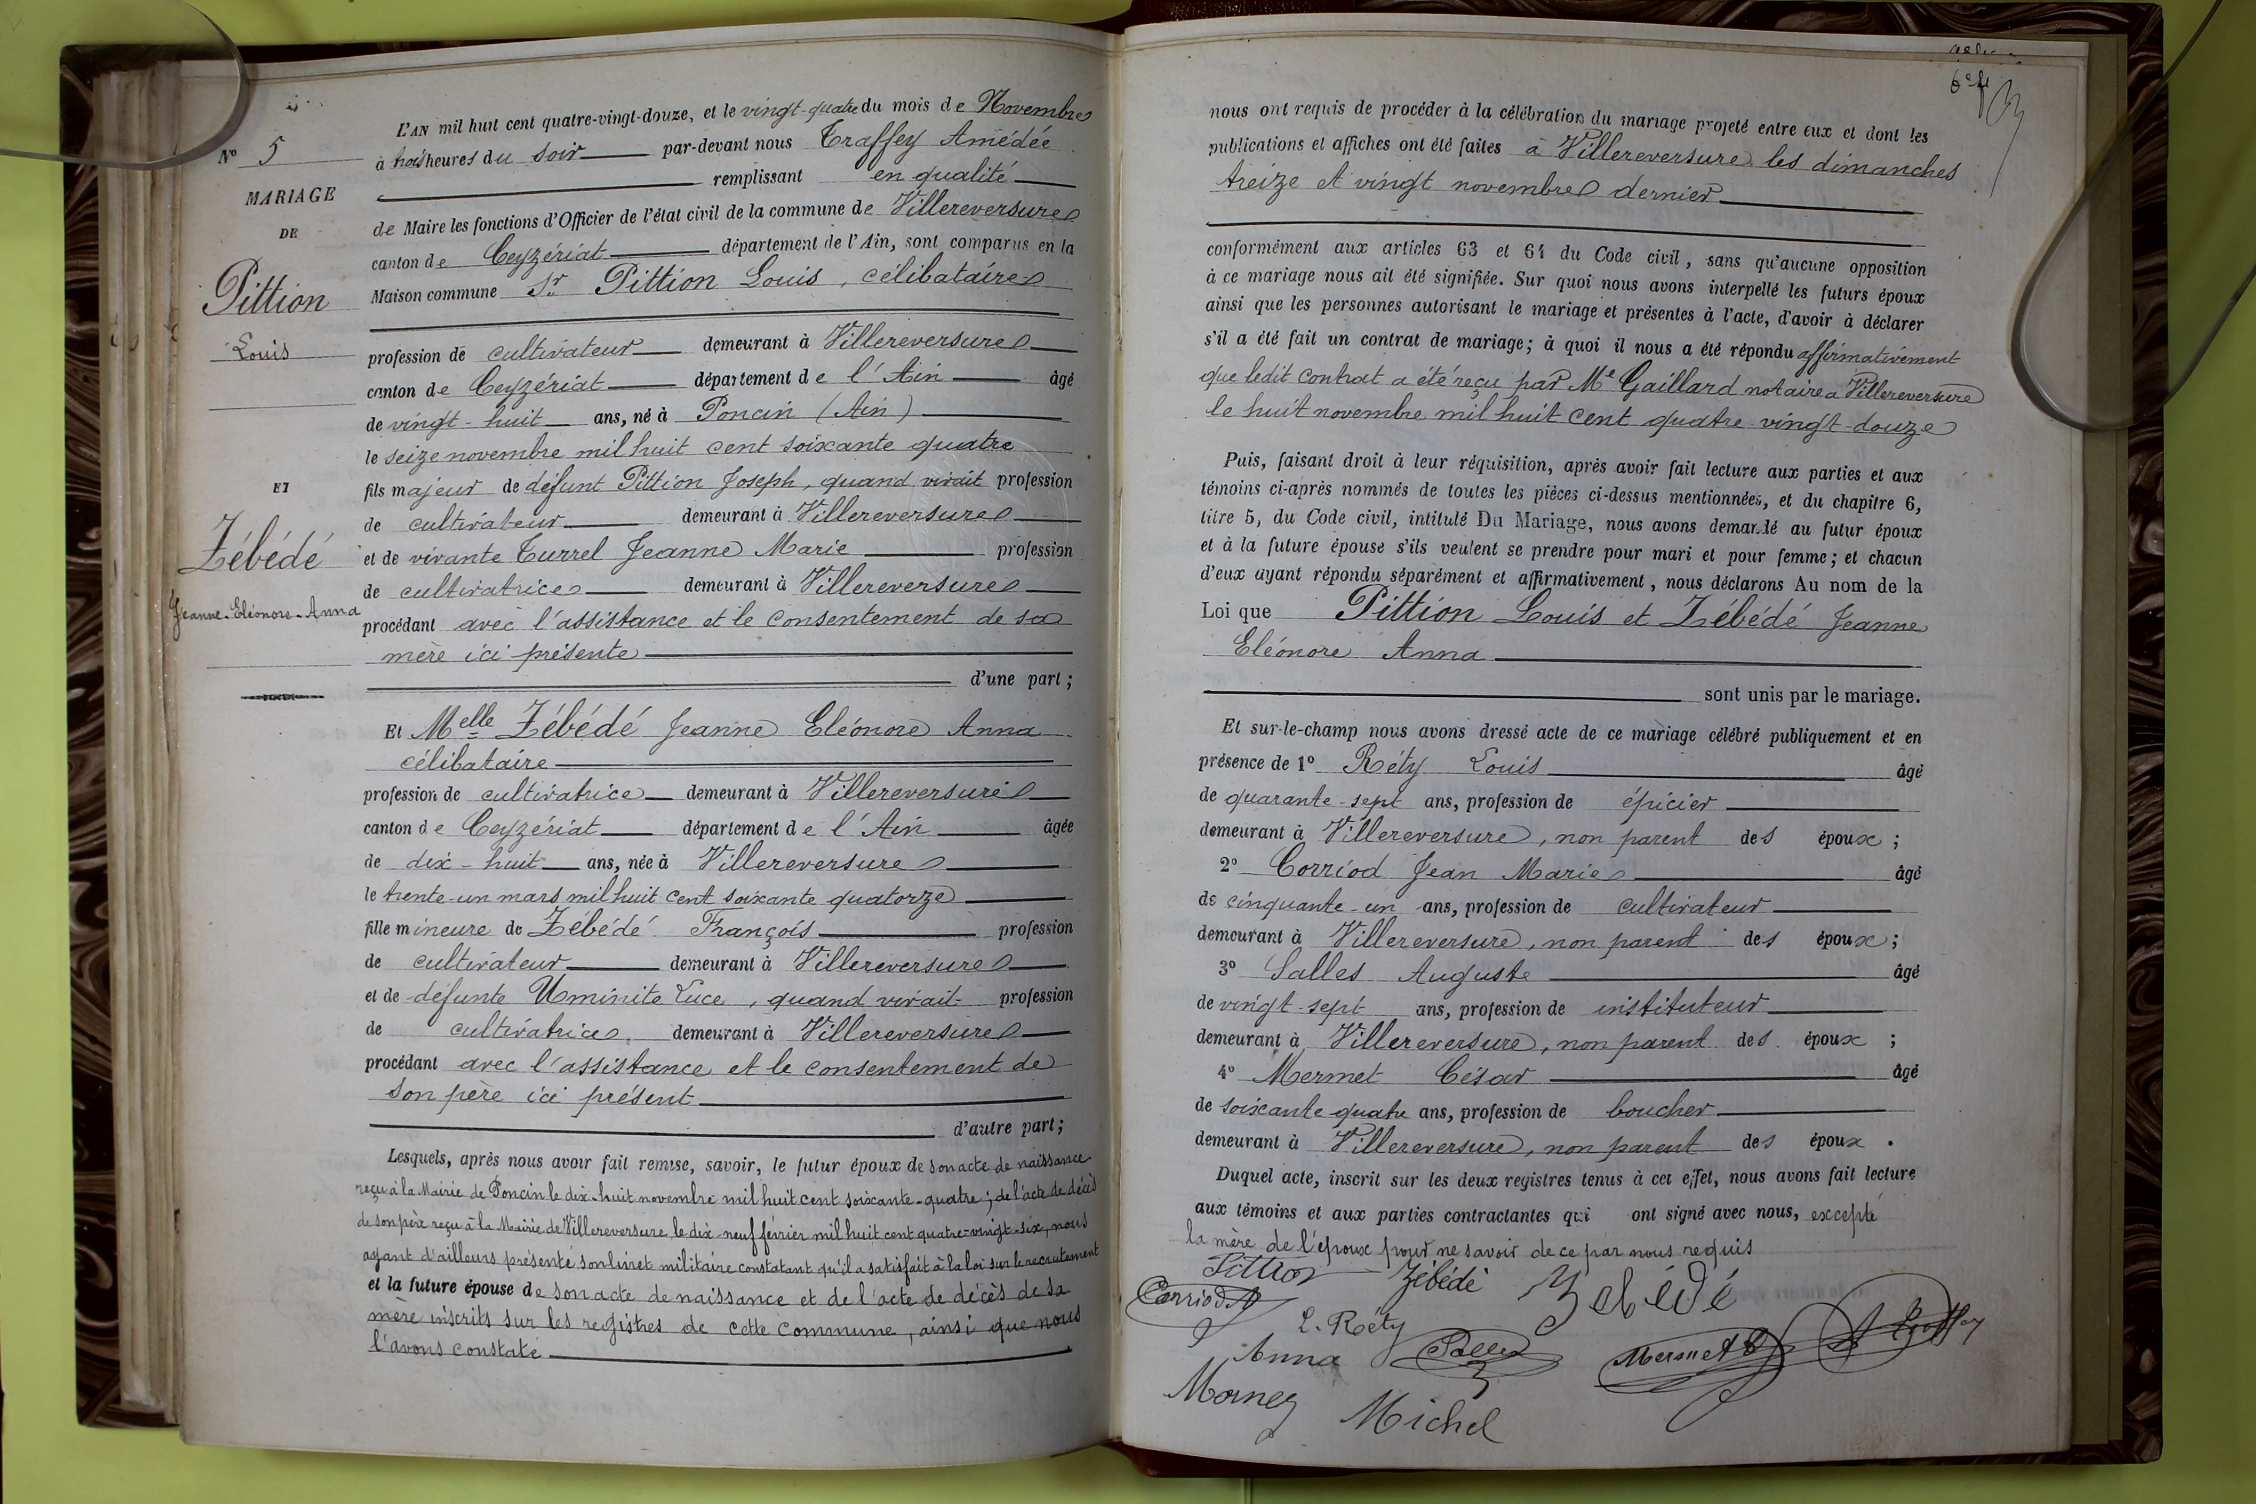 L'AN mil huit cent quatre-vingt-douze, et le vingt-quatre du mois de Novembre
N° 5
à trois heures du soir par-devant nous Traffey Amédée
remplissant en qualité
MARIAGE
DE
de Maire les fonctions d'Officier de l'état civil de la commune de Villereversure
canton de Ceyzériat département de l'Ain, sont comparus en la
Pittion
Maison commune Sr Pittion Louis, célibataire
Louis
profession de cultivateur demeurant à Villereversure
canton de Ceyzériat département de l'Ain âgé
de vingt-huit ans, né à Poncin (Ain)
le seize novembre mil huit cent soixante quatre
ET
fils majeur de défunt Pittion Joseph, quand vivait profession
de cultivateur demeurant à Villereversure
Zébédé
et de vivante Turrel Jeanne Marie profession
de cultivatrice demeurant à Villereversure
Jeanne-Eléonore-Anna
procédant avec l'assistance et le consentement de sa
mère ici présente
d'une part;
Et Melle Zébédé Jeanne Eléonore Anna
célibataire
profession de cultivatrice demeurant à Villereversure
canton de Ceyzériat département de l'Ain âgée
de dix-huit ans, née à Villereversure
le trente-un mars mil huit cent soixante quatorze
fille mineure de Zébédé François profession
de cultivateur demeurant à Villereversure
et de défunte Uminite Luce, quand vivait profession
de cultivatrice demeurant à Villereversure
procédant avec l'assistance et le consentement de
son père ici présent
d'autre part;
Lesquels, après nous avoir fait remise, savoir, le futur époux de son acte de naissance
reçu à la Mairie de Poncin le dix-huit novembre mil huit cent soixante-quatre; de l'acte de décès
de son père reçu à la Mairie de Villereversure le dix neuf février mil huit cent quatre-vingt-six, nous
ayant d'ailleurs présenté son livret militaire constatant qu'il a satisfait à la loi sur le recrutement
et la future épouse de son acte de naissance et de l'acte de décès de sa
mère inscrits sur les registres de cette commune, ainsi que nous
l'avons constaté
nous ont requis de procéder à la célébration du mariage projeté entre eux et dont les
publications et affiches ont été faites à Villereversure les dimanches
treize et vingt novembre dernier
conformément aux articles 63 et 64 du Code civil, sans qu'aucune opposition
à ce mariage nous ait été signifiée. Sur quoi nous avons interpellé les futurs époux
ainsi que les personnes autorisant le mariage et présentes à l'acte, d'avoir à déclarer
s'il a été fait un contrat de mariage; à quoi il nous a été répondu affirmativement
que ledit contrat a été reçu par Me Gaillard notaire à Villereversure
le huit novembre mil huit cent quatre vingt-douze
Puis, faisant droit à leur réquisition, après avoir fait lecture aux parties et aux
témoins ci-après nommés de toutes les pièces ci-dessus mentionnées, et du chapitre 6,
titre 5, du Code civil, intitulé Du Mariage, nous avons demandé au futur époux
et à la future épouse s'ils veulent se prendre pour mari et pour femme; et chacun
d'eux ayant répondu séparément et affirmativement, nous déclarons Au nom de la
Loi que Pittion Louis et Zébédé Jeanne
Eléonore Anna
sont unis par le mariage.
Et sur-le-champ nous avons dressé acte de ce mariage célébré publiquement et en
présence de 1° Réty Louis âgé
de quarante-sept ans, profession de épicier
demeurant à Villereversure, non parent des époux;
2° Corriod Jean Marie âgé
de cinquante-un ans, profession de cultivateur
demeurant à Villereversure, non parent des époux;
3° Salles Auguste âgé
de vingt-sept ans, profession de instituteur
demeurant à Villereversure, non parent des époux;
4° Mermet César âgé
de soixante quatre ans, profession de boucher
demeurant à Villereversure, non parent des époux.
Duquel acte, inscrit sur les deux registres tenus à cet effet, nous avons fait lecture
aux témoins et aux parties contractantes qui ont signé avec nous, excepté
la mère de l'époux pour ne savoir de ce par nous requis
Pittion Zébédé Zebédé
Corriod
L. Réty
Anna Salles Mermet A Traffey
Morney Michel